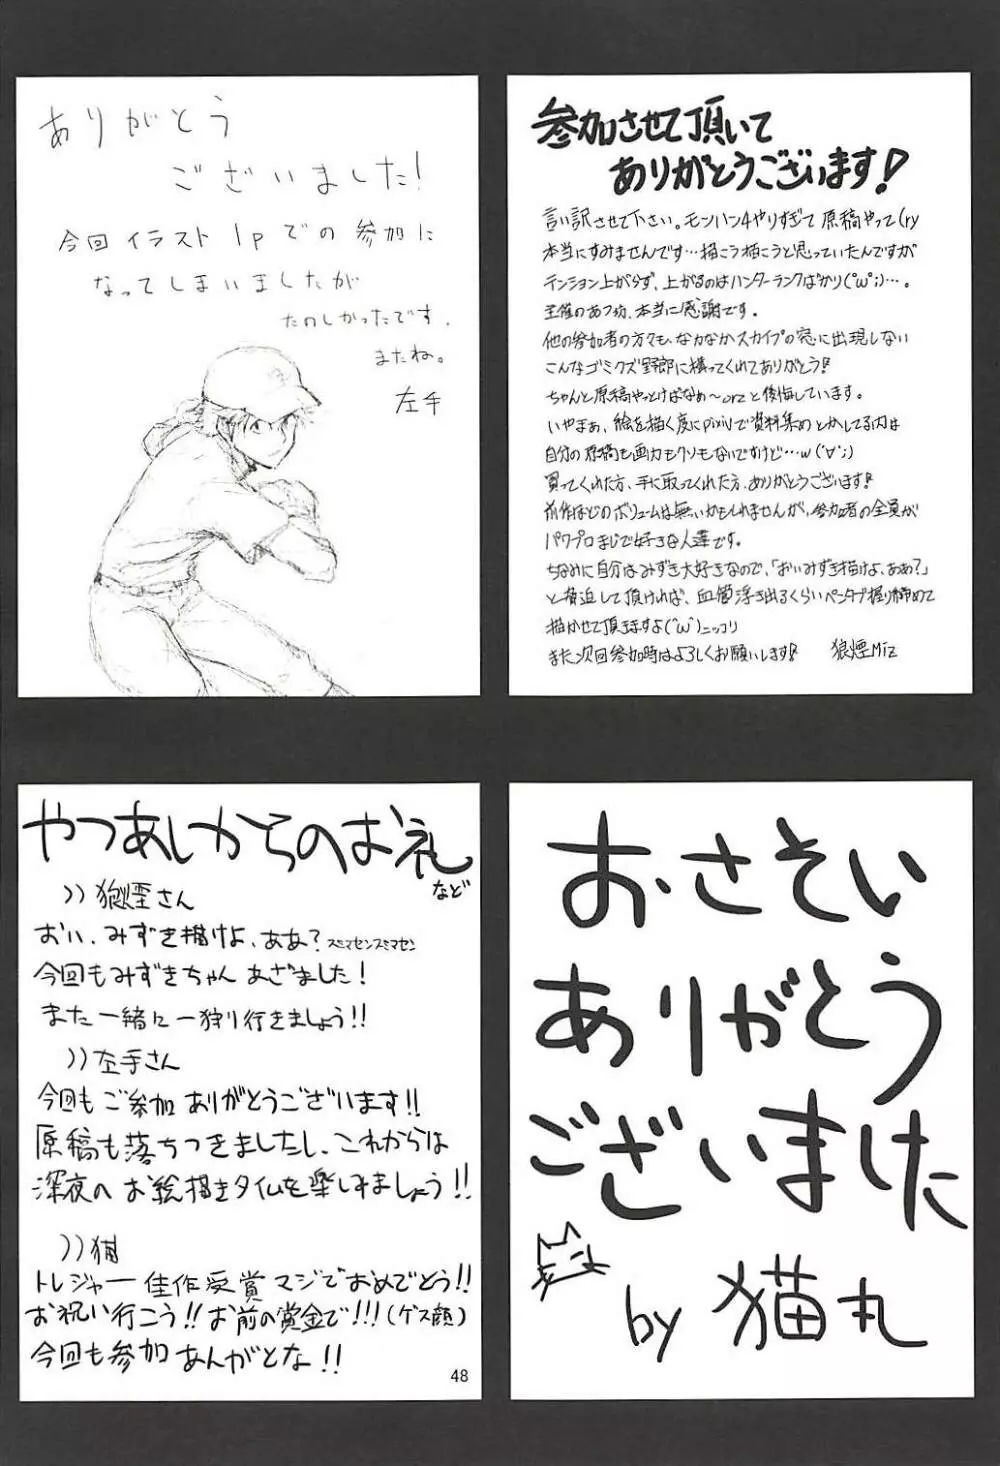 ありがとう
ございました!
今回イラスト1pでの参加に
なってしまいましたが
たのしかったです.
またね。
左手
参加させて頂いて
ありがとうございます!
言い訳させて下さい。モンハン4やりすぎて原稿やって(ry
本当にすみませんです…描こう描こうと思っていたんですが
テンション上がらず、上がるのはハンターランクばかり(°ω°;)…。
主催のあつ坊、本当に感謝です。
他の参加者の方々も、なかなかスカイプの窓に出現しない
こんなゴミクズ野郎に構ってくれてありがとう!
ちゃんと原稿やっとけばなぁ〜orzと後悔しています。
いやまぁ、絵を描く度にpixivで資料集めとかしてる内は
自分の原稿も画力もクソもないですけど…w(´∀`;)
買ってくれた方、手に取ってくれた方、ありがとうございます!
前作ほどのボリュームは無いかもしれませんが、参加者の全員が
パワプロまじで好きな人達です。
ちなみに自分はみずき大好きなので、「おいみずき描けよ、ああ?」
と脅迫して頂ければ、血管浮き出るくらいペンタブ握り締めて
描かせて頂きますよ(´ω`)ニッコリ
また次回参加時はよろしくお願いします! 狼煙Miz
やつあしからのお礼
など
》狼煙さん
おい、みずき描けよ、ああ?スミマセンスミマセン
今回もみずきちゃんあざました!
また一緒に一狩り行きましょう!!
》左手さん
今回もご参加ありがとうございます!!
原稿も落ちつきましたし、これからは
深夜のお絵描きタイムを楽しみましょう!!
》猫
トレジャー佳作受賞マジでおめでとう!!
お祝い行こう!!お前の賞金で!!!(ゲス顔)
今回も参加あんがとな!!
48
おさそい
ありがとう
ございました
by 猫丸